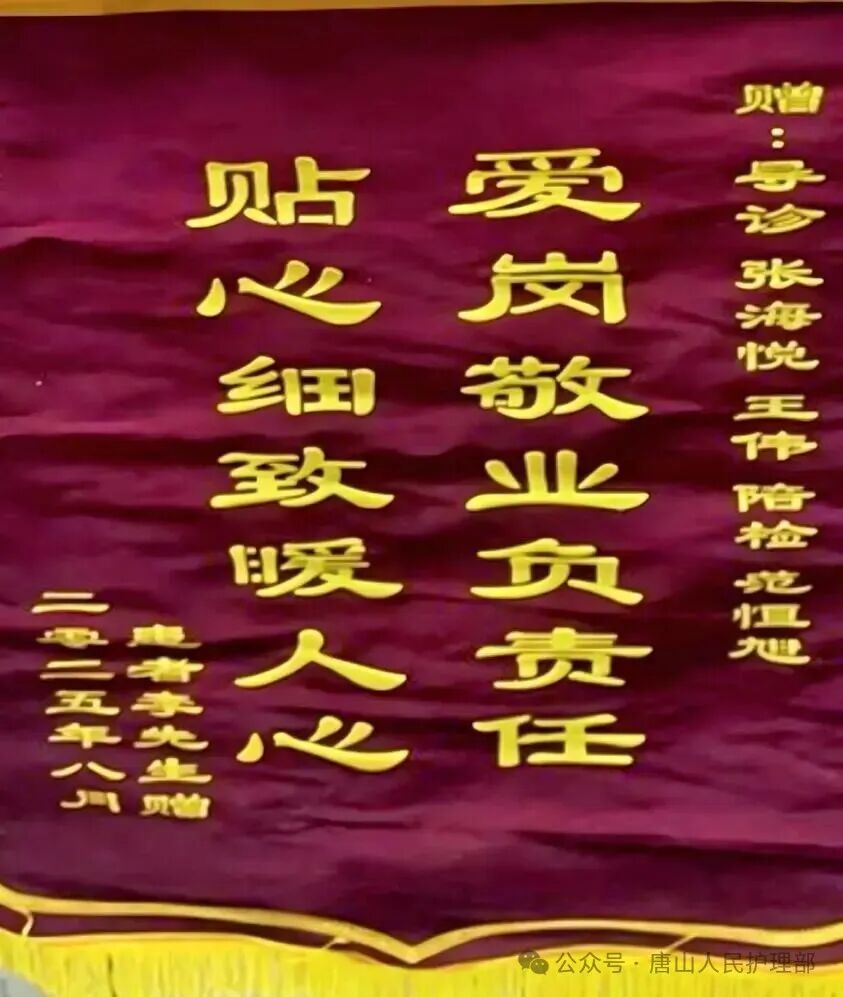 赠：导诊 张海悦 王伟 陪检 范恒旭
爱岗敬业负责任
贴心细致暖人心
患者李先生赠
二零二五年八月
公众号 · 唐山人民护理部